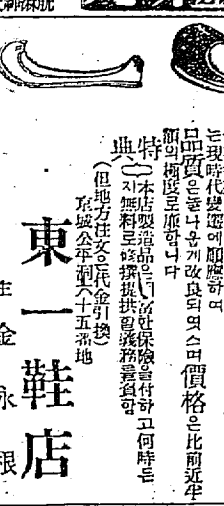 는現時代變遷에順應하며
品質은눌나웁게改良되엿스며價格은比前近半
額의極度로廉합니다
特典
本店製造品은 한保險을付하고何時든
지無料로修繕提供할義務를負함
(但地方注文은代金引換)
京城公平洞六十五番地
東一鞋店
主 金永根